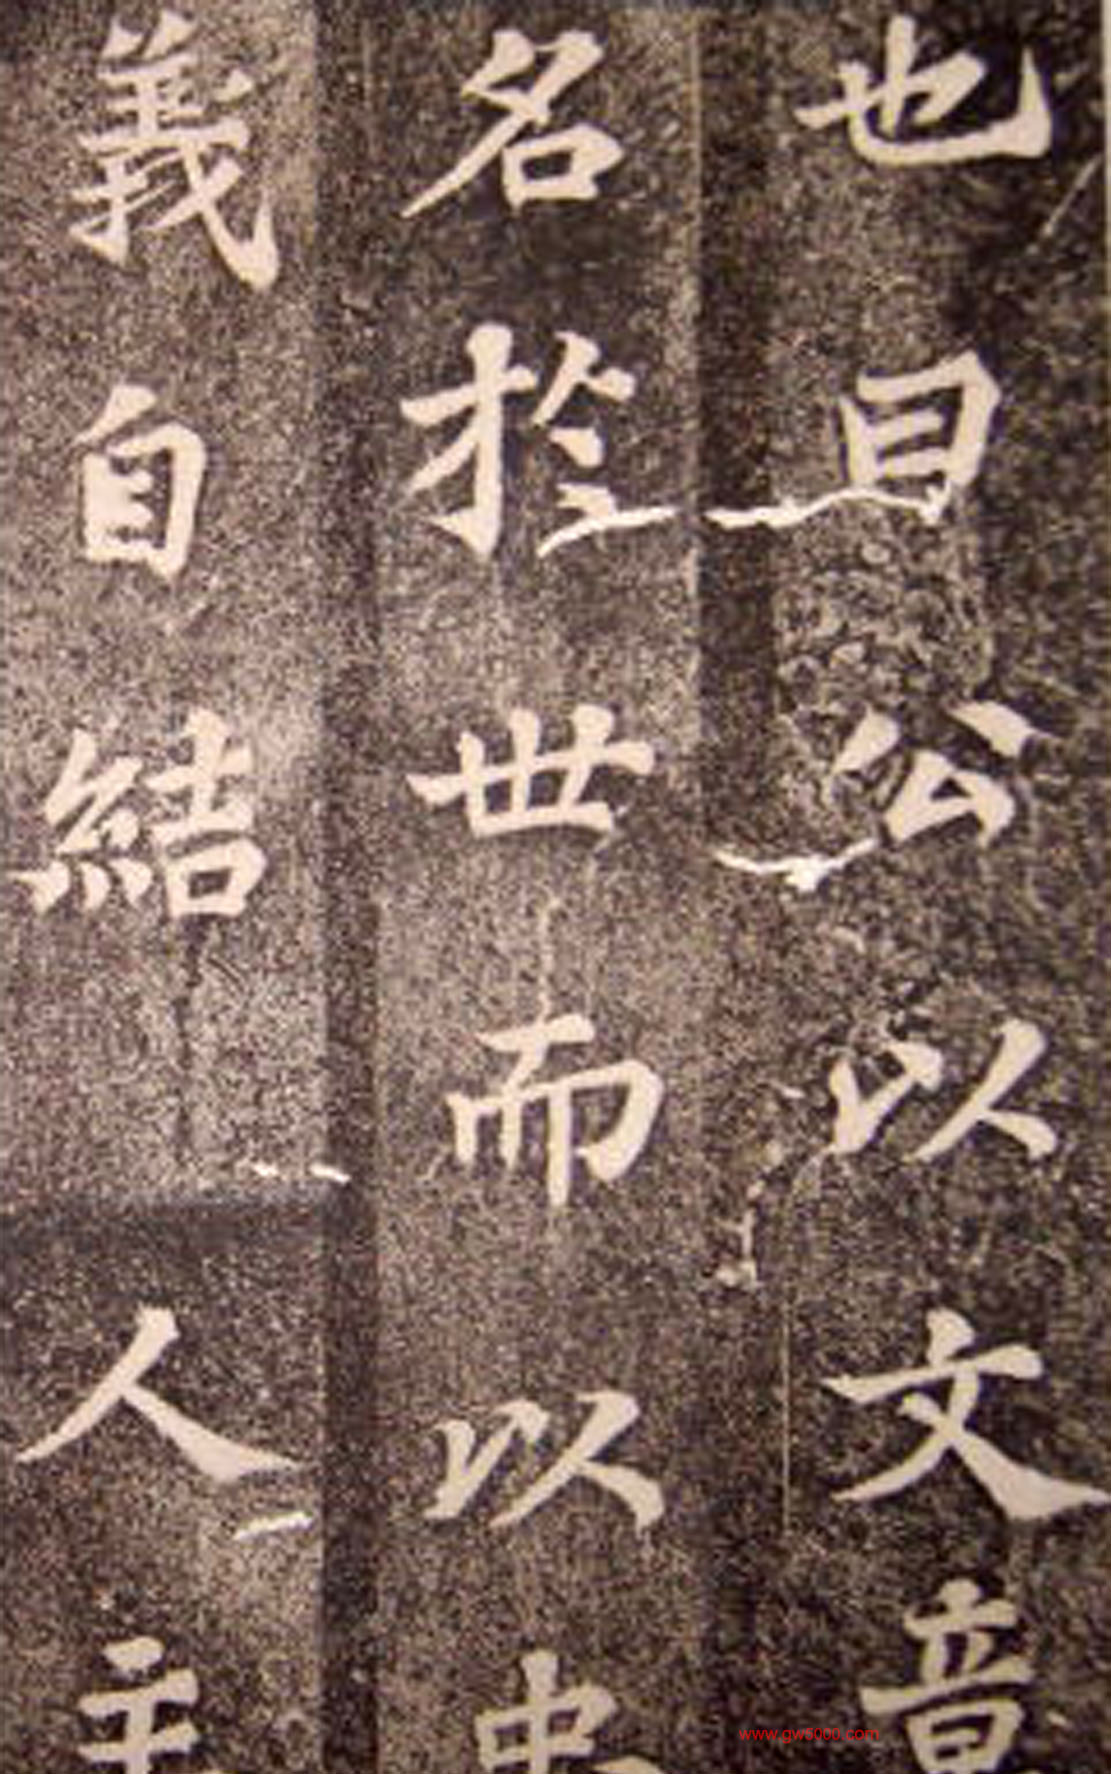 也且公以文章
名於世而以忠
義自結人主
www.gw5000.com